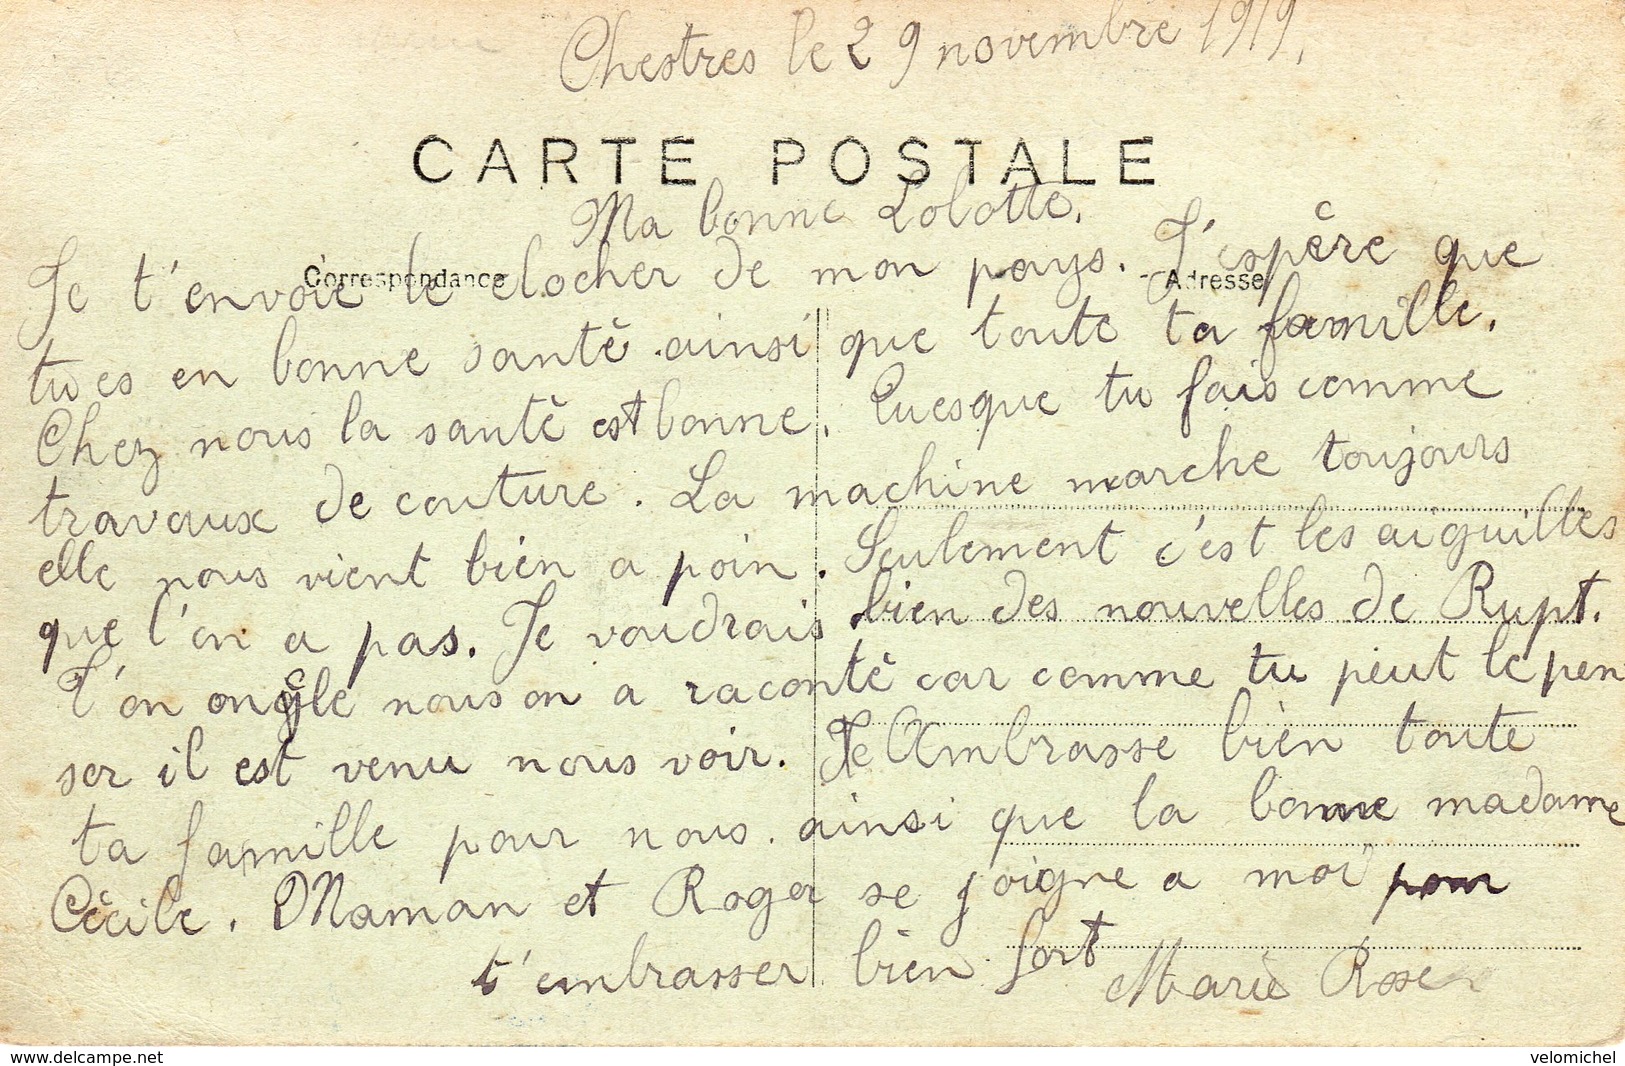 Chestres le 29 novembre 1919.
CARTE POSTALE
Ma bonne Lolotte.
Correspondance
Adresse
Je t'envoie le clocher de mon pays. J'espère que
tu es en bonne santé ainsi que toute ta famille.
Chez nous la santé est bonne. Quesque tu fais comme
travaux de couture. La machine marche toujours
elle nous vient bien a poin. Seulement c'est les aiguilles
que l'on a pas. Je voudrais bien des nouvelles de Rupt.
T'on ongle nous on a raconté car comme tu peut le pen
ser il est venu nous voir. Je Ambrasse bien toute
ta famille pour nous. ainsi que la bonne madame
Cécile. Maman et Roger se joigne a moi pour
t'embrasser bien fort
Marie Rose
www.delcampe.net
velomichel